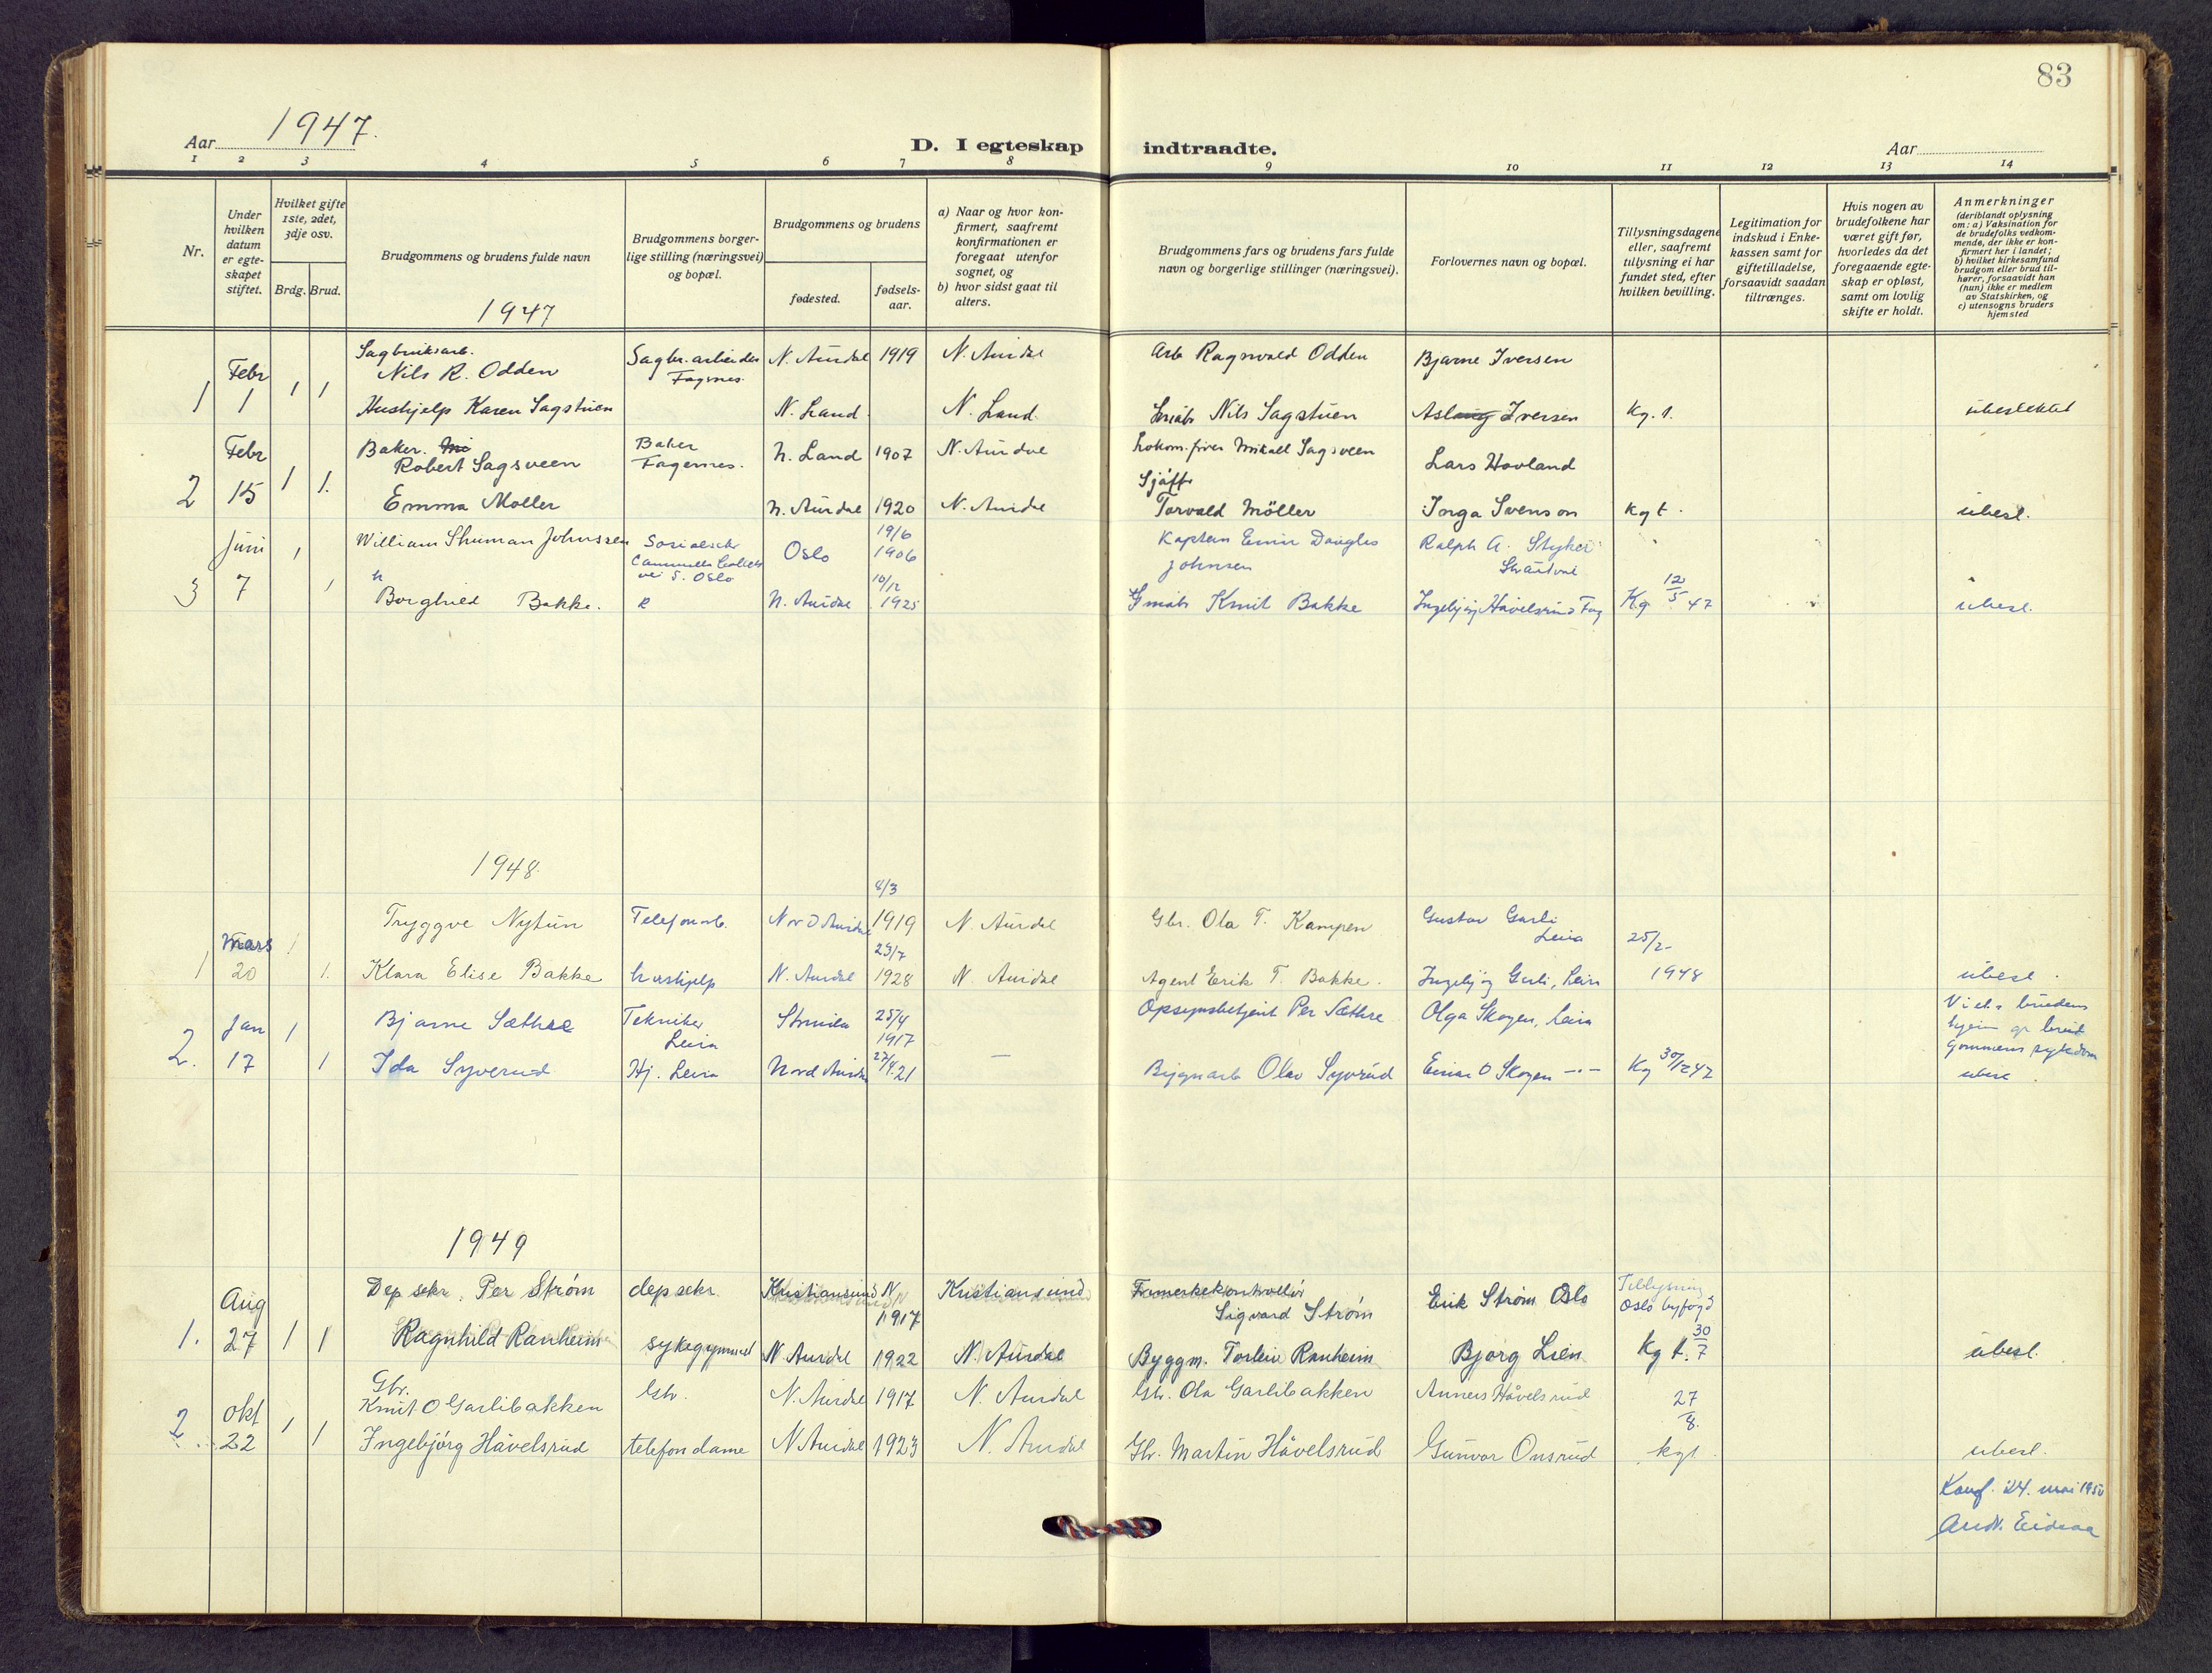 83
Aar 1947.
D. I egteskap indtraadte.
Aar
1 2 3 4 5 6 7 8 9 10 11 12 13 14
Nr.
Under hvilken datum er egteskapet stiftet.
Hvilket gifte 1ste, 2det, 3dje osv.
Brdg. Brud.
Brudgommens og brudens fulde navn
Brudgommens borgerlige stilling (næringsvei) og bopæl.
Brudgommens og brudens
fødested.
fødselsaar.
a) Naar og hvor konfirmert, saafremt konfirmationen er foregaat utenfor sognet, og
b) hvor sidst gaat til alters.
Brudgommens fars og brudens fars fulde navn og borgerlige stillinger (næringsvei).
Forlovernes navn og bopæl.
Tillysningsdagene eller, saafremt tillysning ei har fundet sted, efter hvilken bevilling.
Legitimation for indskud i Enkekassen samt for giftetilladelse, forsaavidt saadan tiltrænges.
Hvis nogen av brudefolkene har været gift før, hvorledes da det foregaaende egteskap er opløst, samt om lovlig skifte er holdt.
Anmerkninger
(deriblandt oplysning om: a) Vaksination for de brudefolks vedkommende, der ikke er konfirmert her i landet;
b) hvilket kirkesamfund brudgom eller brud tilhører, forsaavidt han (hun) ikke er medlem av Statskirken, og
c) utensogns bruders hjemsted
1947
Sagbruksarb.
Febr Nils R. Odden Sagbr. arbeider Fagernes N. Aurdal 1919 N. Aurdal Arb Ragnvald Odden Bjarne Iversen
1 1 1 1 Hushjelp Karen Sagstuen N. Land N. Land Småbr Nils Sagstuen Aslaug Iversen Kg. t. ubeslektet
Febr Baker. Robert Sagsveen Baker Fagernes. N. Land 1907 N. Aurdal Lokom.fører Mikael Sagsveen Lars Hovland
2 15 1 1. Emma Møller N. Aurdal 1920 N. Aurdal Sjåfør Torvald Møller Torga Svenson Kg t. ubesl.
Juni 1 William Shuman Johnssen Oslo 19/6 1906 Kaptein Douglas Johnsen Ralph A.
3 7 1 Borghild Bakke. N. Aurdal 10/12 1925 Småbr Knut Bakke Ingebjørg Håvelsrud Fag Kg 12/5 47 ubesl.
1948
Mars 1 Tryggve Nytun Telefonarb. Nord Aurdal 4/3 1919 N. Aurdal Gbr. Ola T. Kampen Gustav Garli Leira 25/2-
1 20 1. Klara Elise Bakke hushjelp N. Aurdal 29/7 1928 N. Aurdal Agent Erik T. Bakke. Ingebjørg Garli, Leira 1948 ubesl.
Jan 1 Bjarne Sæthre Tekniker Leira 25/4 1917 Opsynsbetjent Per Sæthre Olga Skogen, Leira Viet i brudens hjem gr brudgommens sykdom
2. 17 1 Ida Syverud Hj. Leira Nord Aurdal 27/4.21 — Bygnarb Olav Syverud Einar O Skogen -"- Kg 30/12 47 ubesl
1949
Aug Dep sekr. Per Strøm dep sekr. Kristiansund N 1917 Kristiansund Sigvard Strøm Erik Strøm Oslo Tillysning Oslo byfogd
1. 27 1 1 Ragnhild Ranheim sykegymnast N. Aurdal 1922 N. Aurdal Byggm. Torleiv Ranheim Bjørg Lien Kg t. 30/7 ubesl.
Okt Gbr. Knut O Garlibakken Gbr. N. Aurdal 1917 N. Aurdal Gbr. Ola Garlibakken Anners Håvelsrud 27/8.
2 22 1 1 Ingebjørg Håvelsrud telefondame N. Aurdal 1923 N. Aurdal Gbr. Martin Håvelsrud Gunvor Onsrud kgt. ubesl.
Konf. 24. mai 1950
Andr. Eidsaa